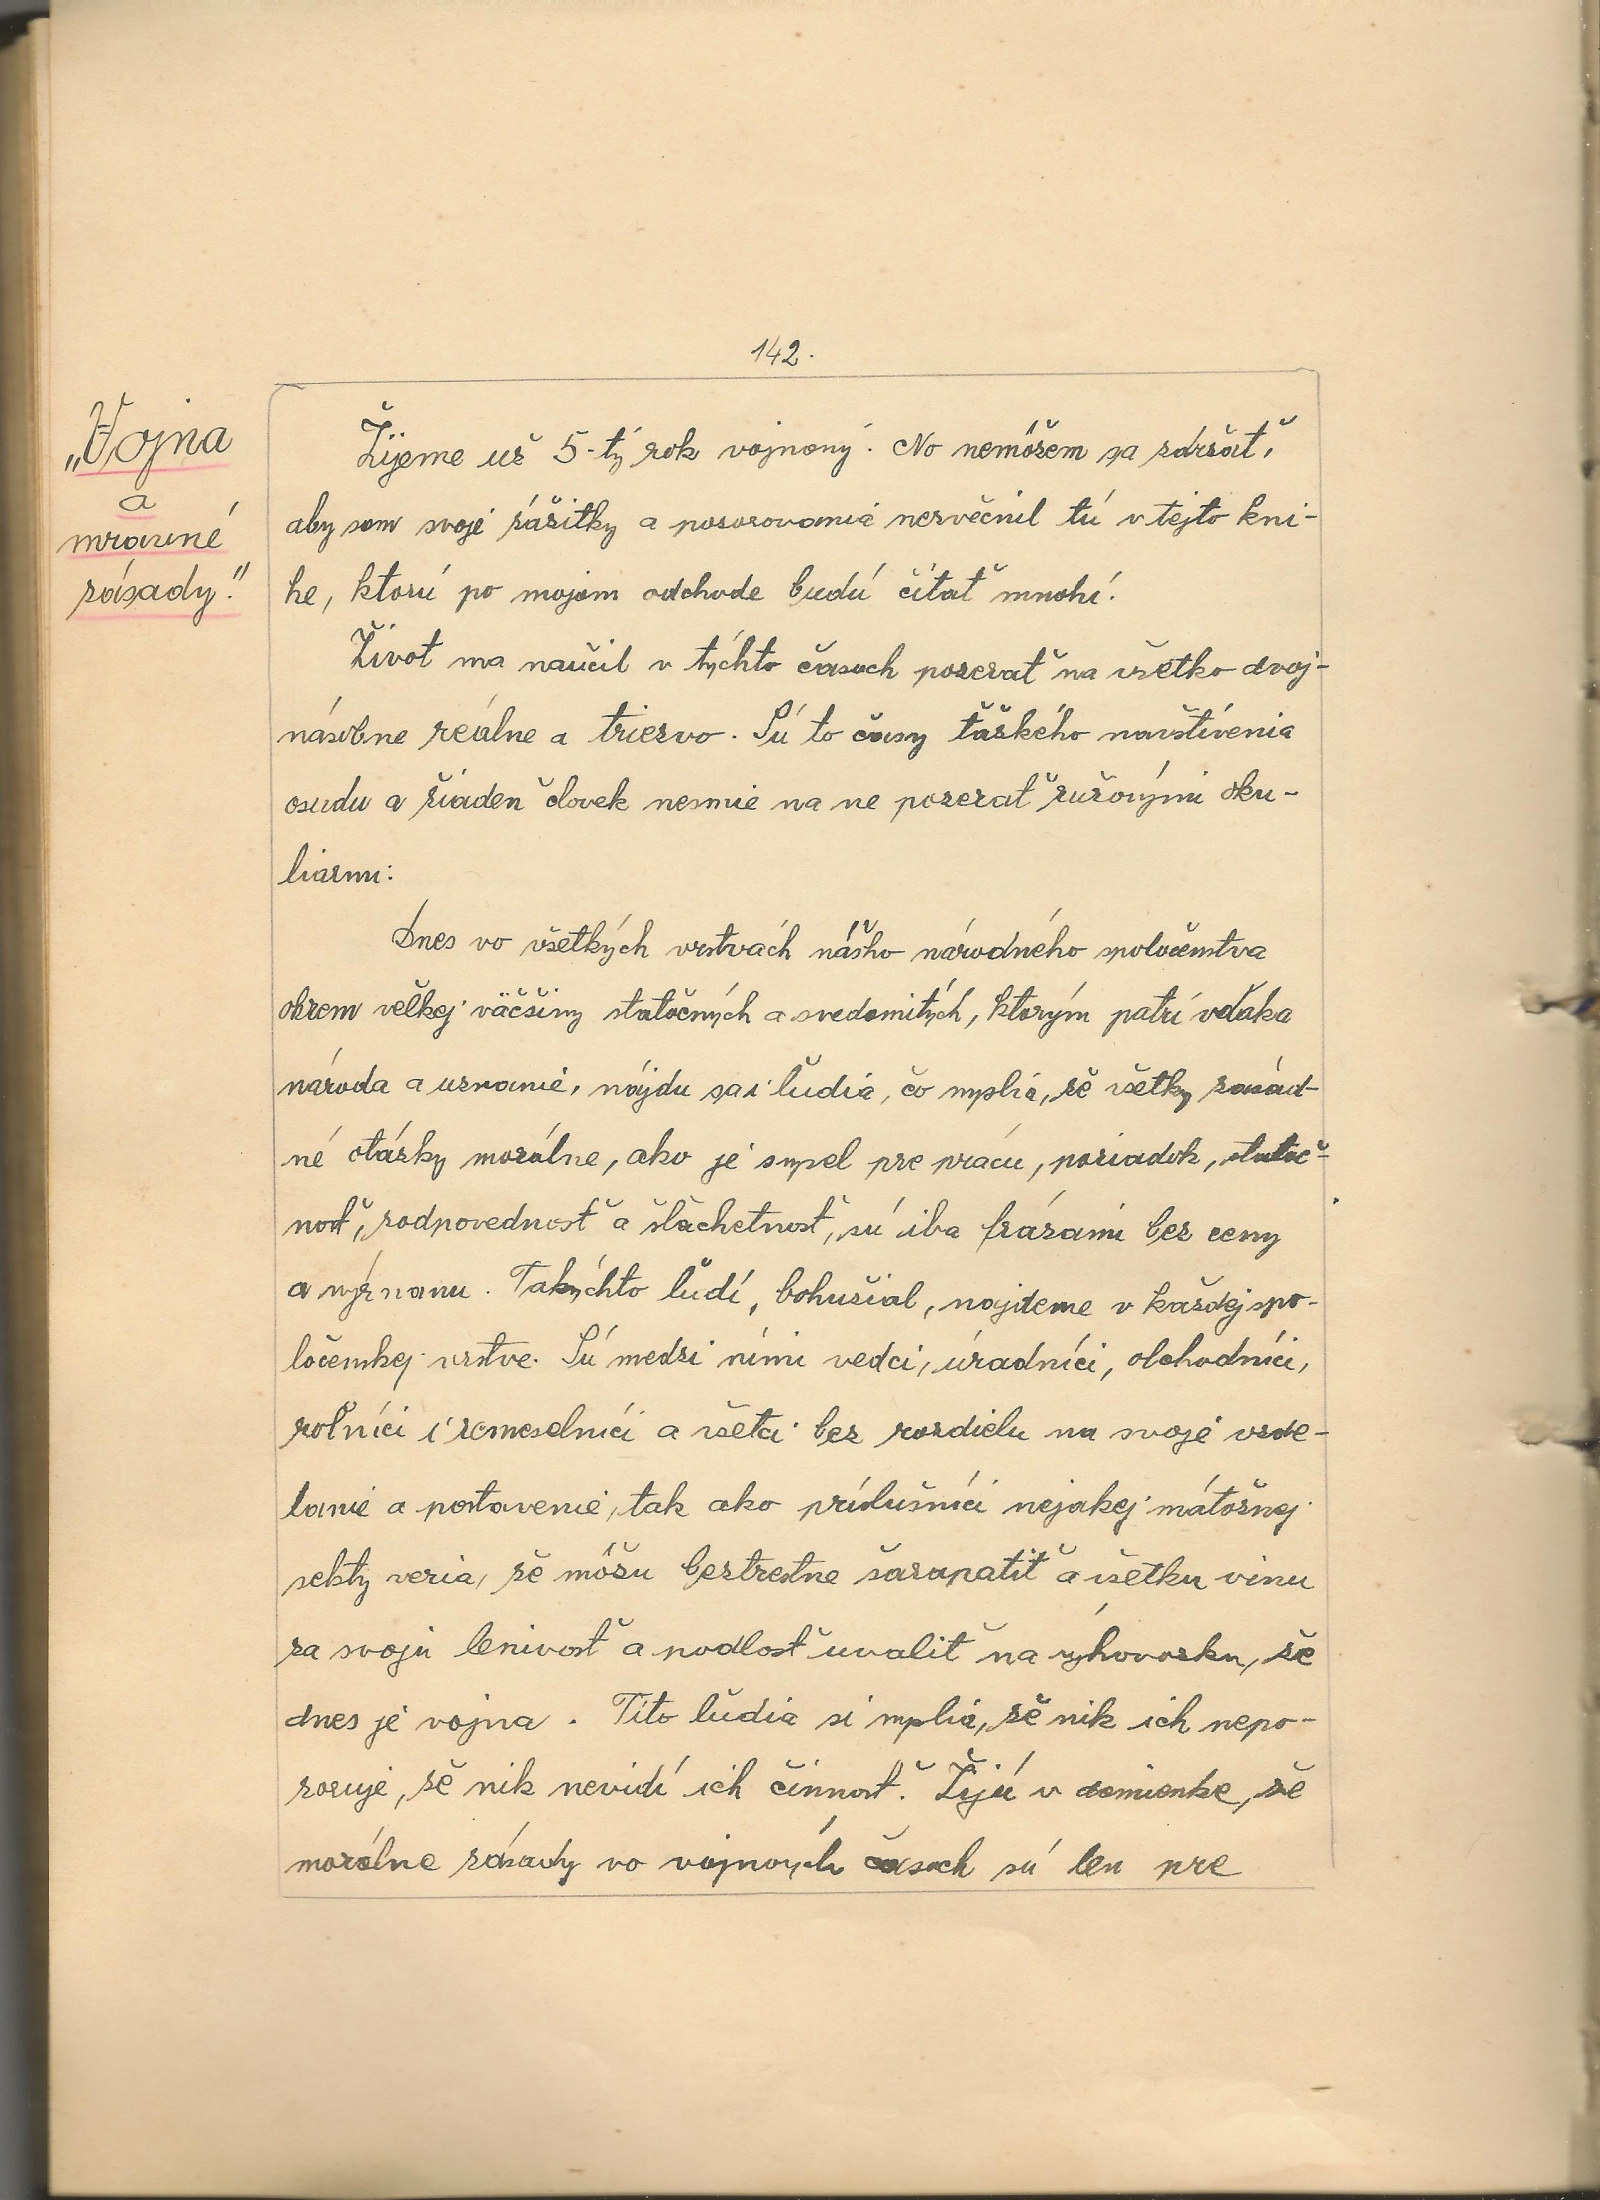 142.
„Vojna
a
mravné
zásady."
Žijeme už 5-tý rok vojnový. No nemôžem sa zdržať,
aby som svoje zážitky a pozorovania nezvěčnil tú v tejto kni-
he, ktorú po mojom odchode budú čítať mnohí.
Život ma naučil v týchto časoch pozerať na všetko dvoj-
násobne reálne a triezvo. Sú to časy ťažkého navštívenia
osudu a žiaden človek nesmie na ne pozerať ružovými oku-
liarmi:
Dnes vo všetkých vrstvách nášho národného spoločenstva
okrem veľkej väčšiny statočných a svedomitých, ktorým patrí vďaka
národa a uznanie, nájdu sa i ľudia, čo myslia, že všetky zásad-
né otázky morálne, ako je smysel pre prácu, poriadok, statoč-
nosť, zodpovednosť a šľachetnosť, sú iba frázami bez ceny
a významu. Takýchto ľudí, bohužial, najdeme v každej spo-
ločenskej vrstve. Sú medzi nimi vedci, úradníci, obchodníci,
roľníci i remeselníci a všetci bez rozdielu na svoje vzde-
lanie a postavenie, tak ako príslušníci nejakej mátožnej
sekty veria, že môžu beztrestne šarapatiť a všetku vinu
za svoju lenivosť a podlosť uvaliť na výhovorku, že
dnes je vojna. Títo ľudia si myslia, že nik ich nepo-
zoruje, že nik nevidí ich činnosť. Žijú v domienke, že
morálne zásady vo vojnových časoch sú len pre